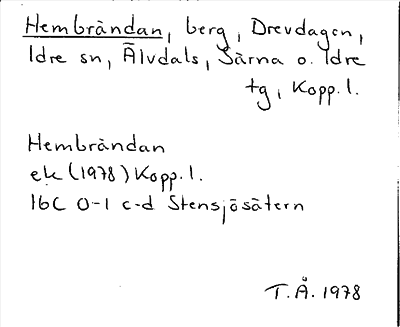 Hembrändan, berg, Drevdagen,
Idre sn, Älvdals, Särna o. Idre
tg, Kopp.l.
Hembrändan
ek (1978) Kopp.l.
16C 0-1 c-d Stensjösätern
T.Å. 1978